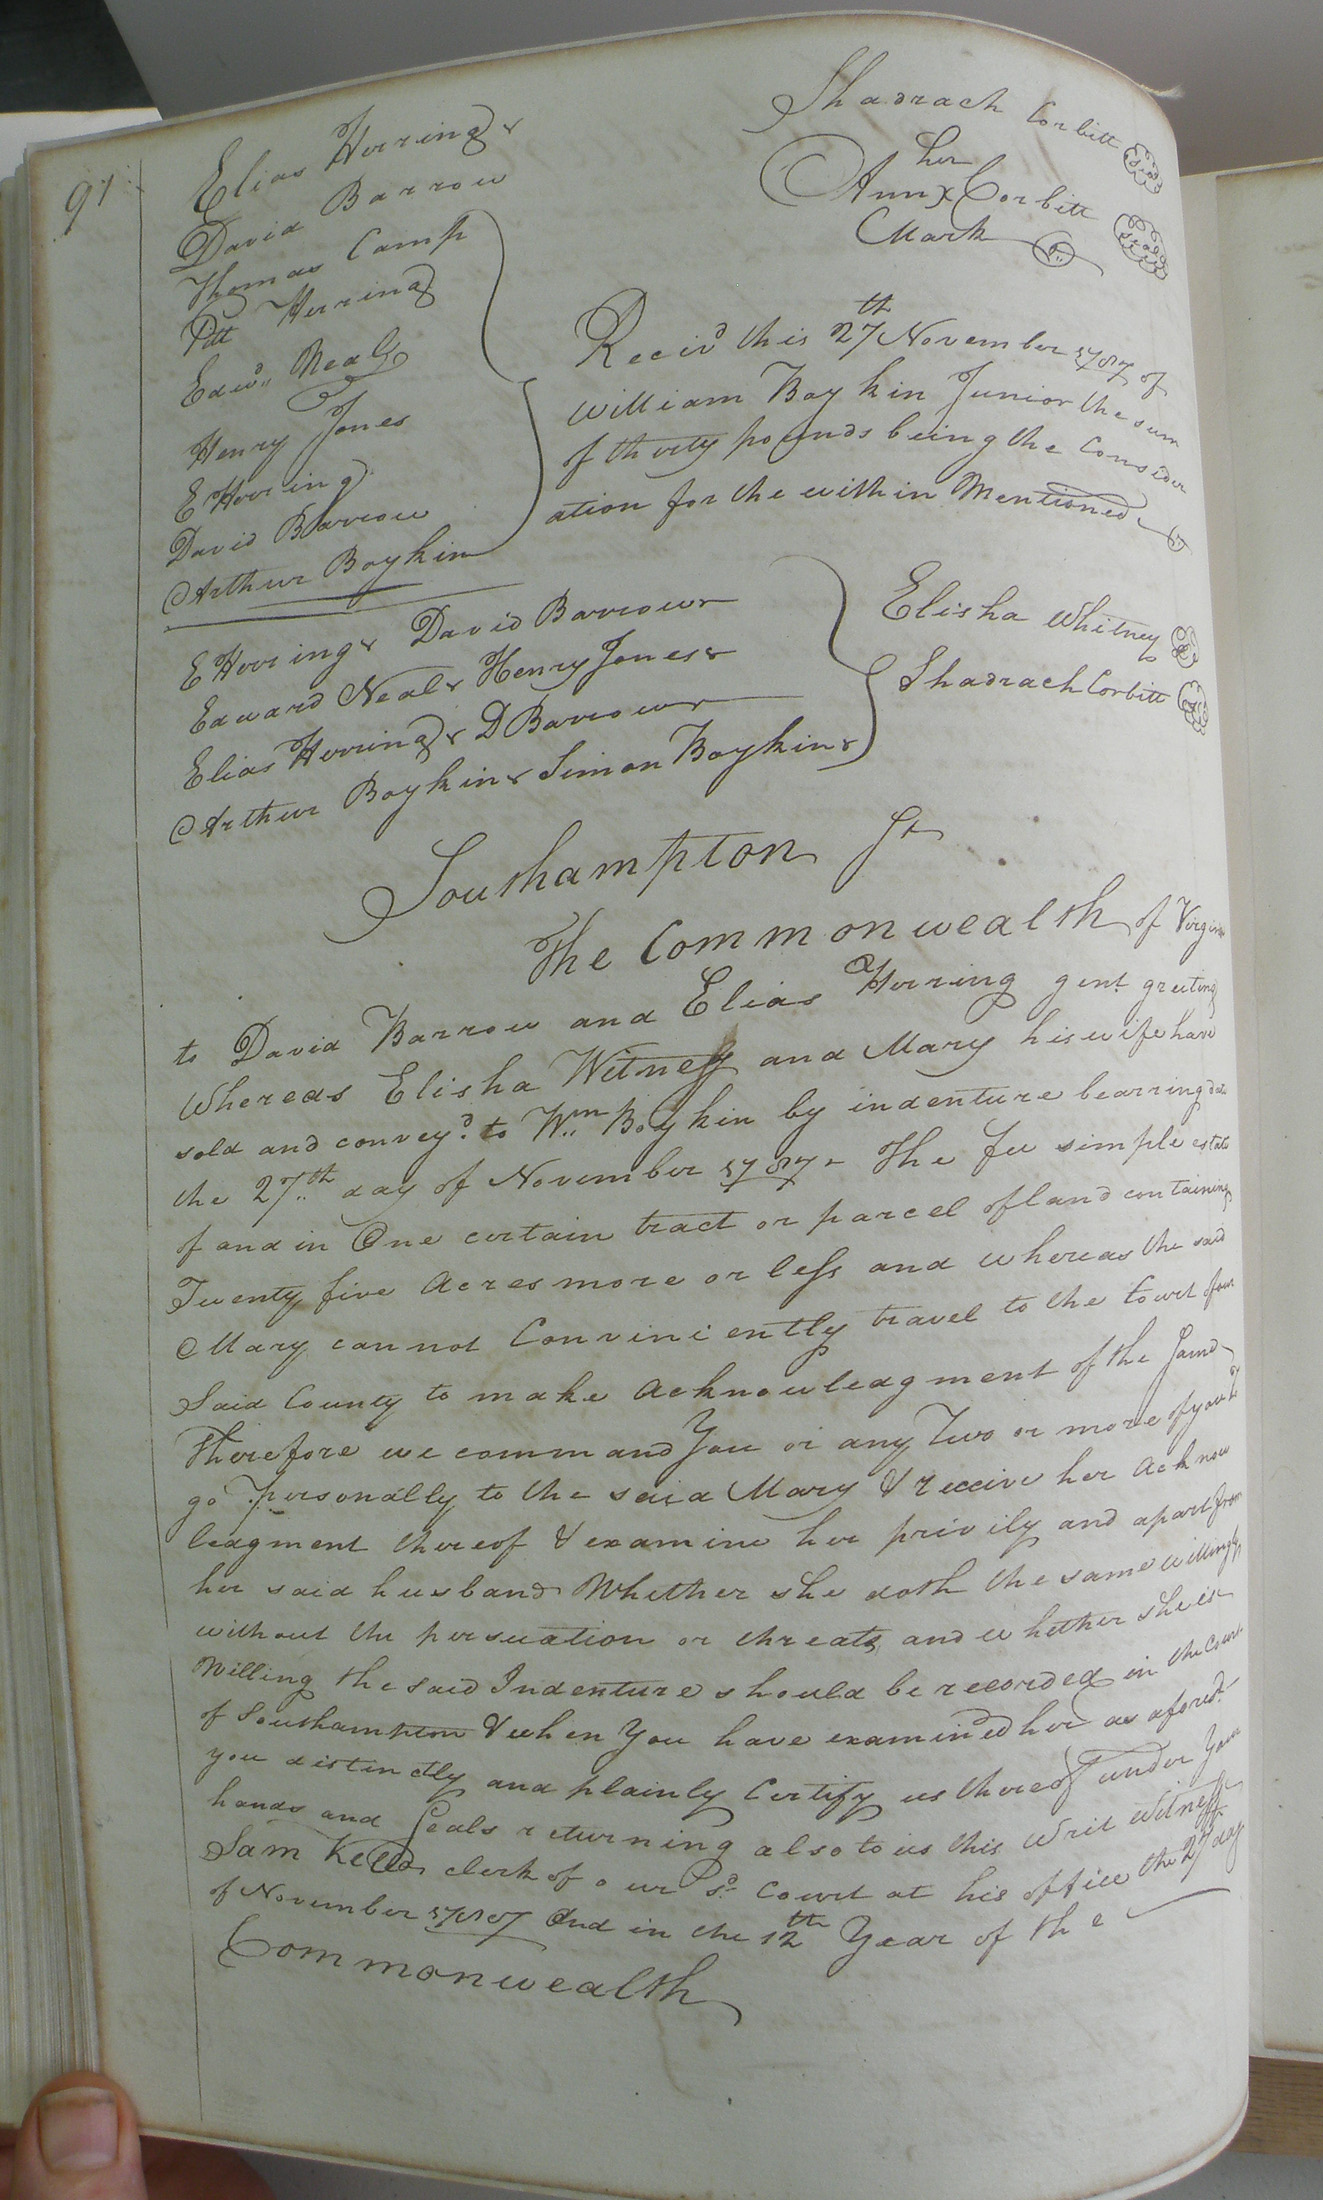 91
Elias Herring &
David Barrow
Thomas Camp
Pitt Herring
Edwd. Neal &
Henry Jones
E Herring
David Barrow
Arthur Boykin
Shadrach Corbitt Seal
her
Ann x Corbitt
Mark
Seal
Recivd this 27th November 1787 of
William Boykin Junior the sum
of thirty pounds being the Consider
ation for the within Mentioned
E Herring & David Barrow &
Edward Neal & Henry Jones &
Elias Herring & D Barrow &
Arthur Boykin & Simon Boykin &
Elisha Whitney
Shadrach Corbitt
Southampton Ss
The Commonwealth of Virginia
to David Barrow and Elias Herring gent. greeting
Whereas Elisha Witney and Mary his wife have
sold and convey'd. to Wm. Boykin by indenture bearring date
the 27th. day of November 1787 - The fee simple estate
of and in One certain tract or parcel of land containing
Twenty five Acres more or less and whereas the said
Mary cannot Conviniently travel to the Court of our
Said County to make Acknowledgment of the Same
Therefore we command You or any Two or more of you to
go personally to the said Mary & receive her Acknow
ledgment thereof & examine her privily and apart from
her said husband Whether she doth the same willingly
without the persuation or threats and whether she is
Willing the said Indenture should be recorded in the Court
of Southampton & when You have examined her as aforesd.
you distinctly and plainly Certify us thereof under Your
hands and Seals returning also to us this Writ Witness
Sam Kello clerk of our sd. Court at his office the 27 day
of November 1787 And in the 12th Year of the
Commonwealth